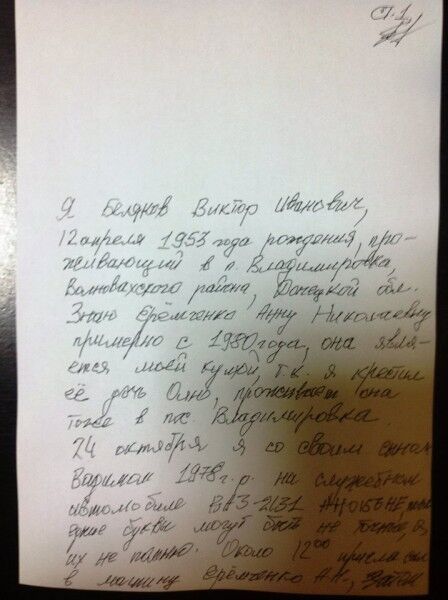 Ст. 1.
Я Беляков Виктор Иванович,
12 апреля 1953 года рождения, про-
живающий в п. Владимировка,
Волновахского района, Донецкой обл.
Знаю Ерёмченко Анну Николаевну
примерно с 1980 года, она явля-
ется моей кумой, т.к. я крестил
её дочь Олю, проживает она
тоже в пос Владимировка.
24 октября я со своим сыном
Вадимом 1978 г.р. на служебном
автомобиле ВАЗ-2131
буквы могут быть не точные, я
их не помню. Около 12 00
в машину Ерёмченко А.Н.,